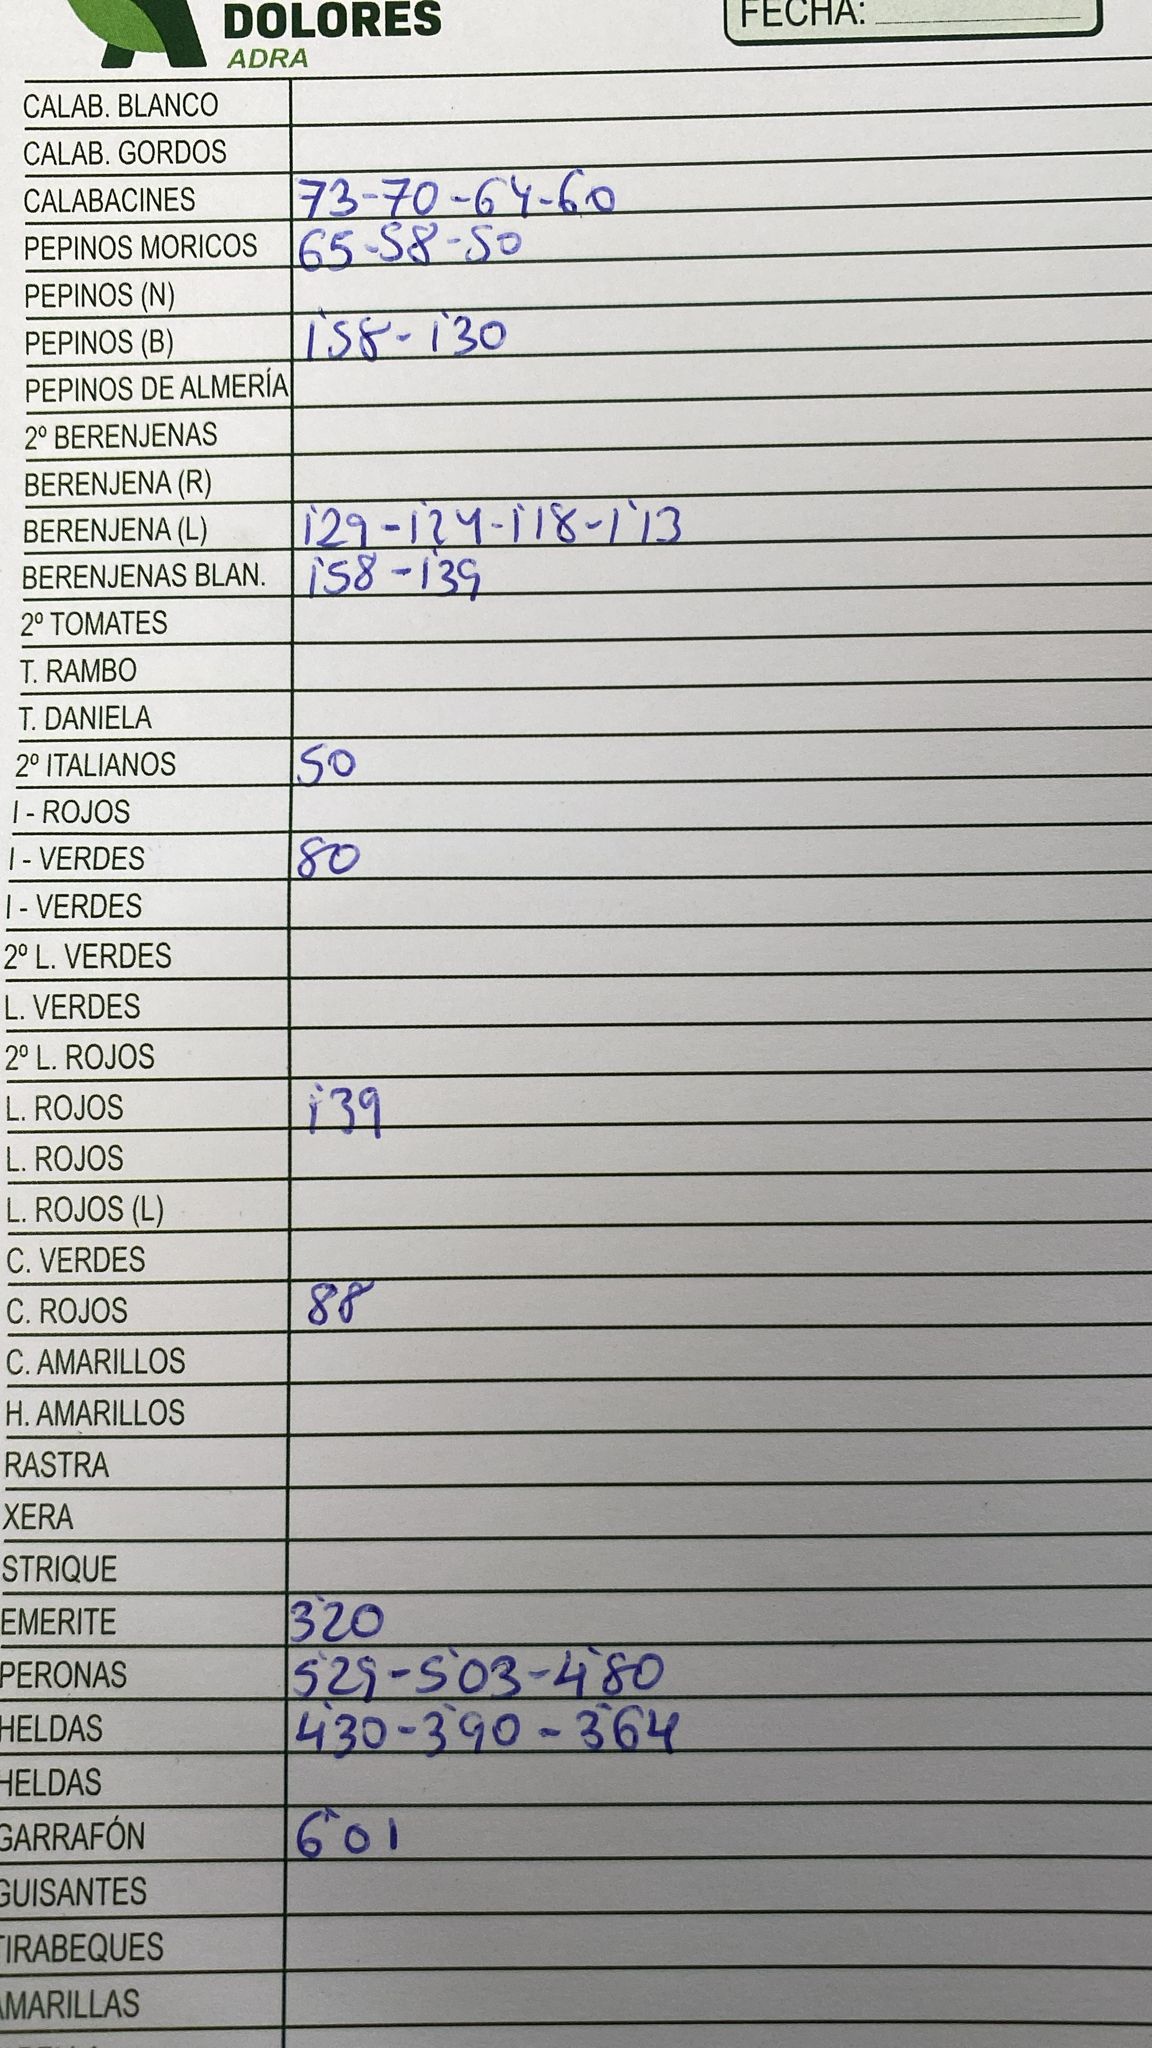 DOLORES
ADRA
FECHA:
CALAB. BLANCO
CALAB. GORDOS
CALABACINES 73-70-64-60
PEPINOS MORICOS 65-58-50
PEPINOS (N)
PEPINOS (B) 1'58-1'30
PEPINOS DE ALMERÍA
2º BERENJENAS
BERENJENA (R)
BERENJENA (L) 1'29-1'24-1'18-1'13
BERENJENAS BLAN. 1'58-1'39
2º TOMATES
T. RAMBO
T. DANIELA
2º ITALIANOS 50
I - ROJOS
I - VERDES 80
I - VERDES
2º L. VERDES
L. VERDES
2º L. ROJOS
L. ROJOS 1'39
L. ROJOS
L. ROJOS (L)
C. VERDES
C. ROJOS 88
C. AMARILLOS
H. AMARILLOS
RASTRA
XERA
STRIQUE
EMERITE 3'20
PERONAS 5'29-5'03-4'80
HELDAS 4'30-3'90-3'64
HELDAS
GARRAFÓN 6'01
GUISANTES
TIRABEQUES
AMARILLAS